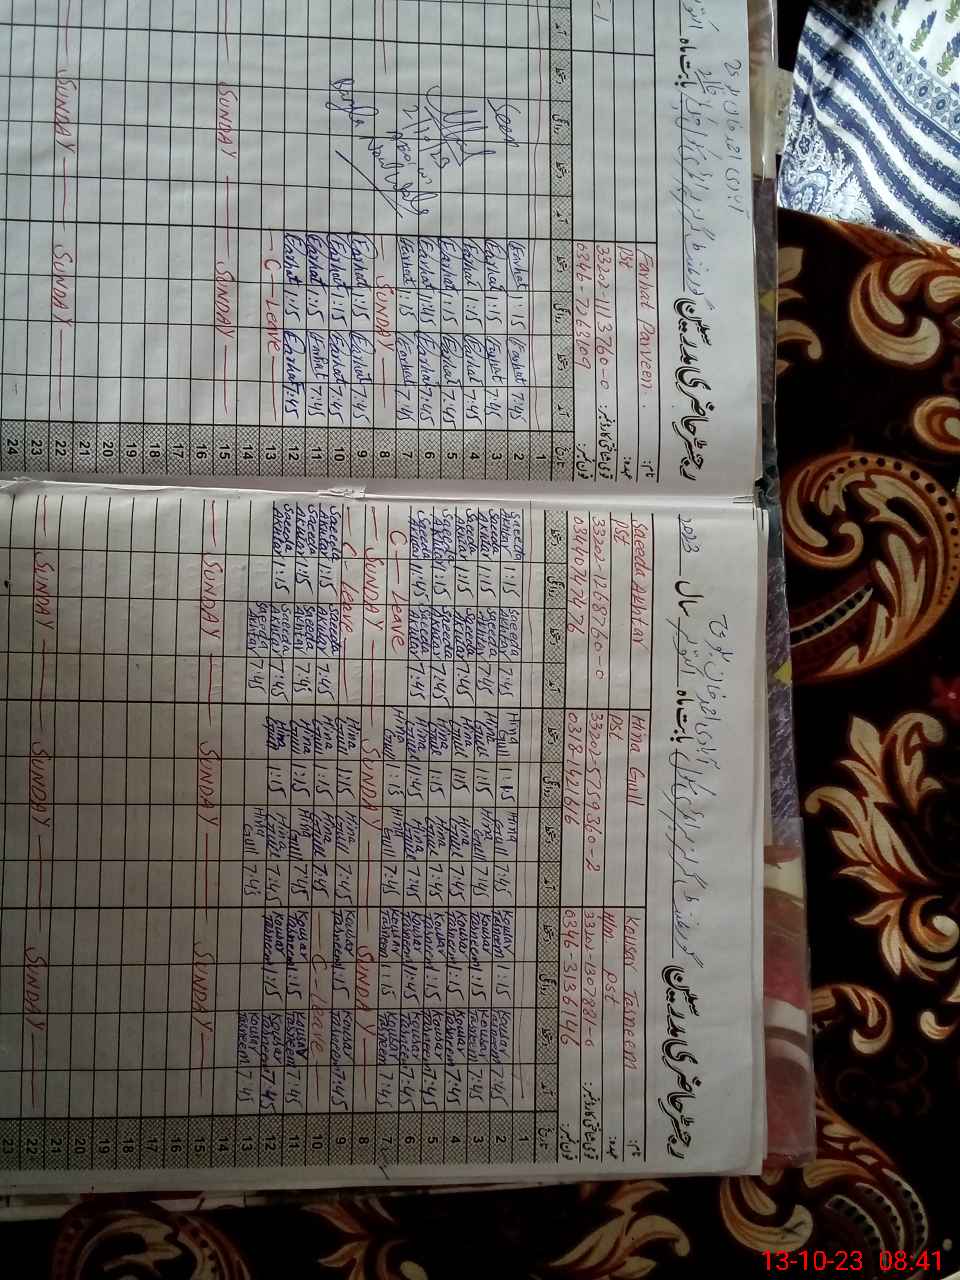 رجسٹر حاضری مدرسین
نام:
Farhat Parveen.
عہدہ:
PST
قومی شناختی کارڈ نمبر:
فون نمبر:
0346 7263109
تاریخ
آمد
دستخط
روانگی
دستخط
1
2 Farhat 7:45 Farhat 1:15
3 Farhat 7:45 Farhat 1:15
4 Farhat 7:45 Farhat 1:15
5 Farhat 7:45 Farhat 1:15
6 Farhat 7:45 Farhat 1:45
7 Farhat 7:45 Farhat 1:15
8 SUNDAY
9 Farhat 7:45 Farhat 1:15
10 Farhat 7:45 Farhat 1:15
11 Farhat 7:45 Farhat 1:15
12 Farhat 7:45 Farhat 1:15
13 C-Leave
14
15 SUNDAY SUNDAY
16
17
18
19
20
21
22 SUNDAY SUNDAY
23
24
Seen
رجسٹر حاضری مدرسین
بابت ماہ اکتوبر سال 2023
نام:
Kousar Tasneem Hina Gull Saeeda Akhtar
عہدہ:
Hm PST PST PST
قومی شناختی کارڈ نمبر:
33202-5759360-2 33202-1268760-0
فون نمبر:
0346-3136146 0318-142166 03440767476
تاریخ
آمد
دستخط
روانگی
دستخط
1
2 Kousar Tasneem 7:45 Kousar Tasneem 1:15 Hina Gull 7:45 Hina Gull 1:15 Saeeda Akhtar 7:45 Saeeda Akhtar 1:15
3 Kousar Tasneem 7:45 Kousar Tasneem 1:15 Hina Gull 7:45 Hina Gull 1:15 Saeeda Akhtar 7:45 Saeeda Akhtar 1:15
4 Kousar Tasneem 7:45 Kousar Tasneem 1:15 Hina Gull 7:45 Hina Gull 1:15 Saeeda Akhtar 7:45 Saeeda Akhtar 1:15
5 Kousar Tasneem 7:45 Kousar Tasneem 1:15 Hina Gull 7:45 Hina Gull 1:15 Saeeda Akhtar 7:45 Saeeda Akhtar 1:15
6 Kousar Tasneem 7:45 Kousar Tasneem 1:45 Hina Gull 7:45 Hina Gull 1:45 Saeeda Akhtar 7:45 Saeeda Akhtar 1:45
7 Kousar Tasneem 7:45 Kousar Tasneem 1:15 Hina Gull 7:45 Hina Gull 1:15 C-Leave
8 SUNDAY SUNDAY SUNDAY
9 Kousar Tasneem 7:45 Kousar Tasneem 1:15 Hina Gull 7:45 Hina Gull 1:15 C-Leave
10 C-Leave Hina Gull 7:45 Hina Gull 1:15 Saeeda Akhtar 7:45 Saeeda Akhtar 1:15
11 Kousar Tasneem 7:45 Kousar Tasneem 1:15 Hina Gull 7:45 Hina Gull 1:15 Saeeda Akhtar 7:45 Saeeda Akhtar 1:15
12 Kousar Tasneem 7:45 Kousar Tasneem 1:15 Hina Gull 7:45 Hina Gull 1:15 Saeeda Akhtar 7:45 Saeeda Akhtar 1:15
13 Kousar Tasneem 7:45 Hina Gull 7:45 Saeeda Akhtar 7:45
14
15 SUNDAY SUNDAY SUNDAY
16
17
18
19
20
21
22 SUNDAY SUNDAY SUNDAY
23
13-10-23 08:41